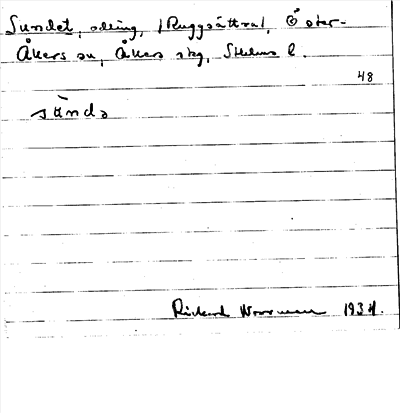 Sundet, odling, /Ruggsättra/, Öster-
Åkers sn, Åkers skg, Sthlms l.
48
sùndə
Rickard Norrman 1934.